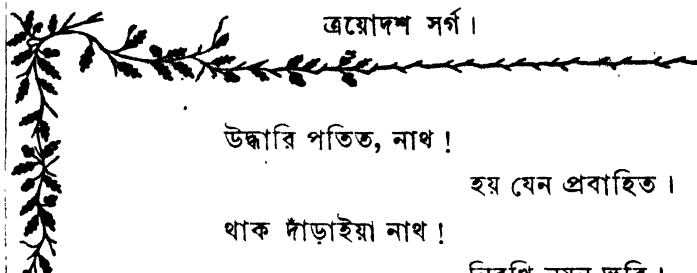 ত্রয়োদশ সর্গ।
উদ্ধারি পতিত, নাথ !
হয় যেন প্রবাহিত।
থাক দাঁড়াইয়া নাথ !